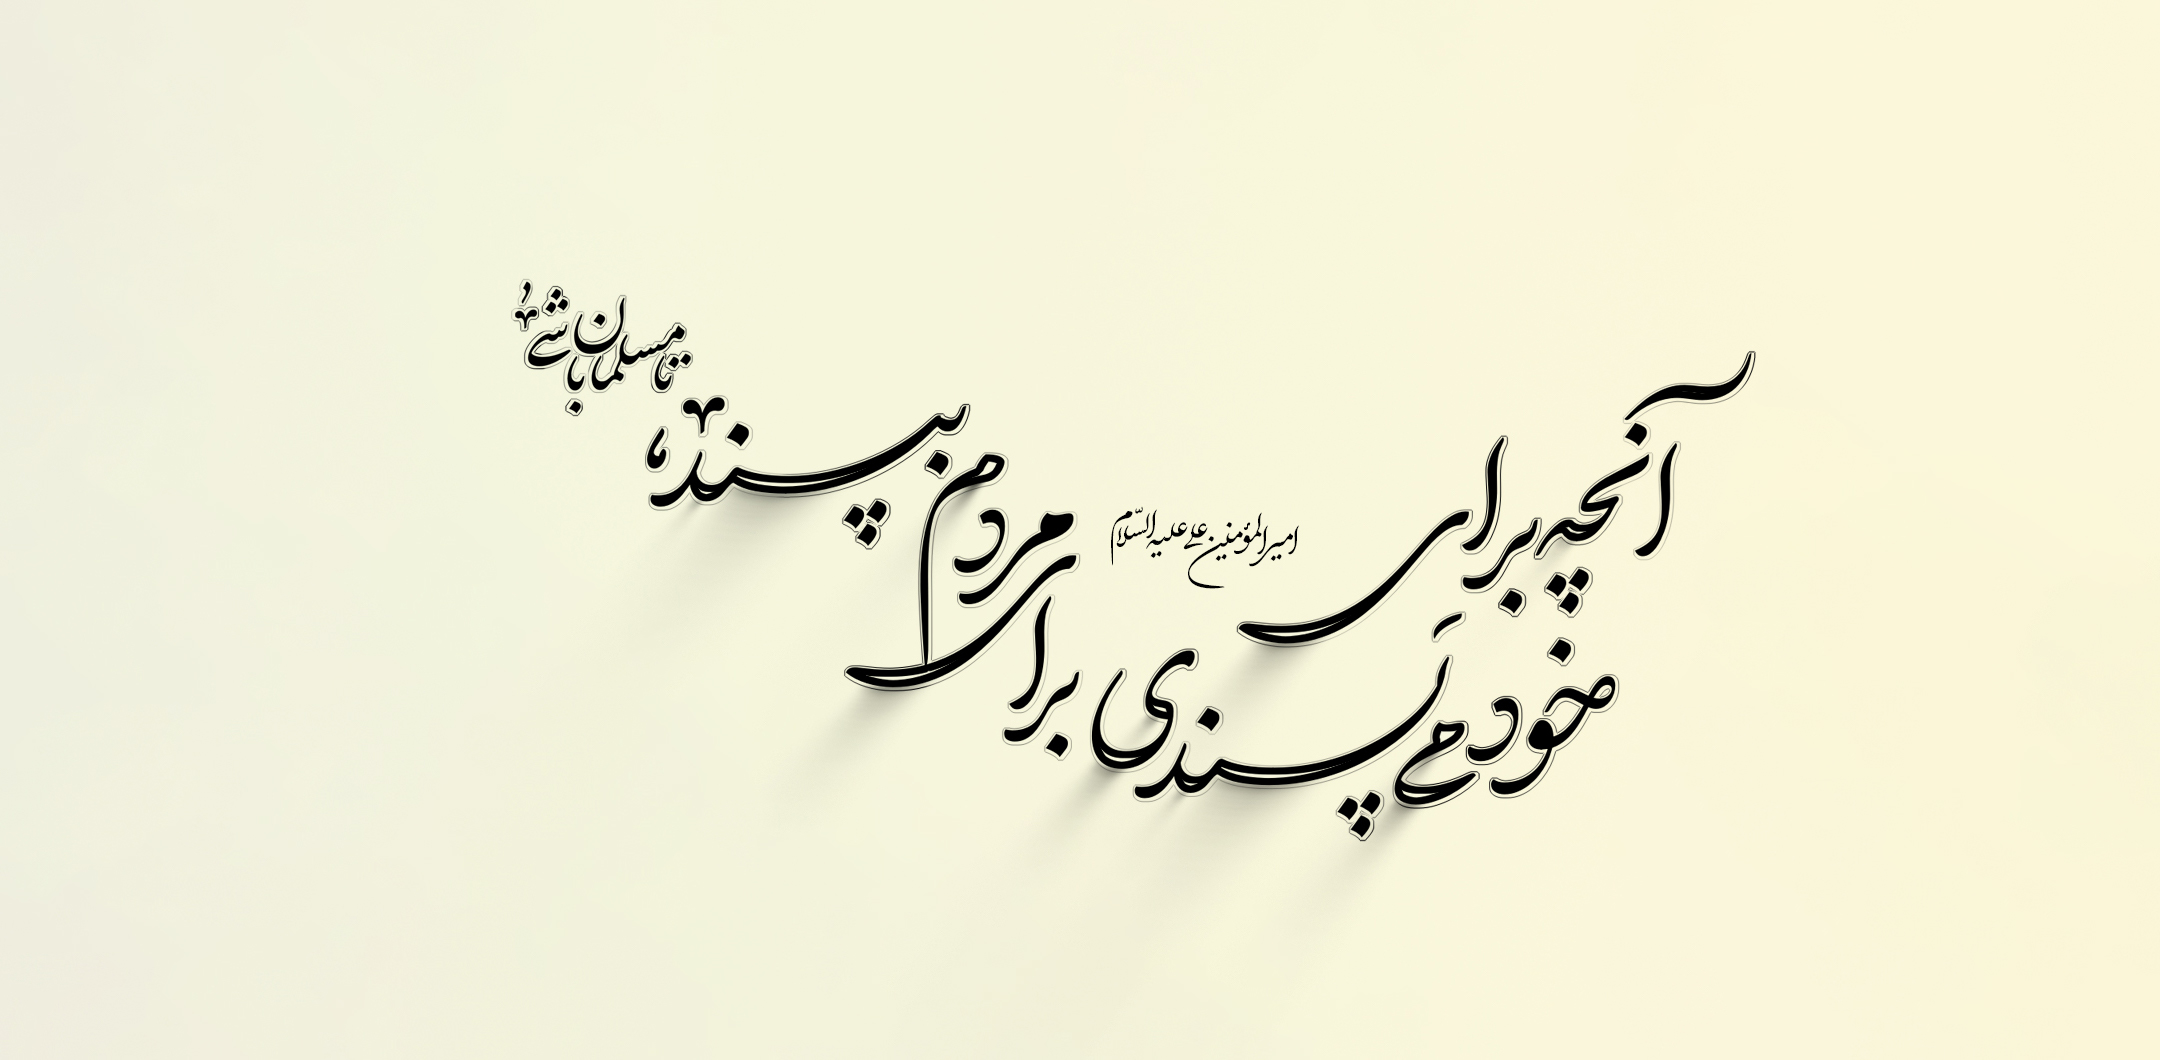 آنچه برای
خود می پسندی برای
مردم بپسند
تا مسلمان باشی
امیرالمؤمنین علی علیه السّلام